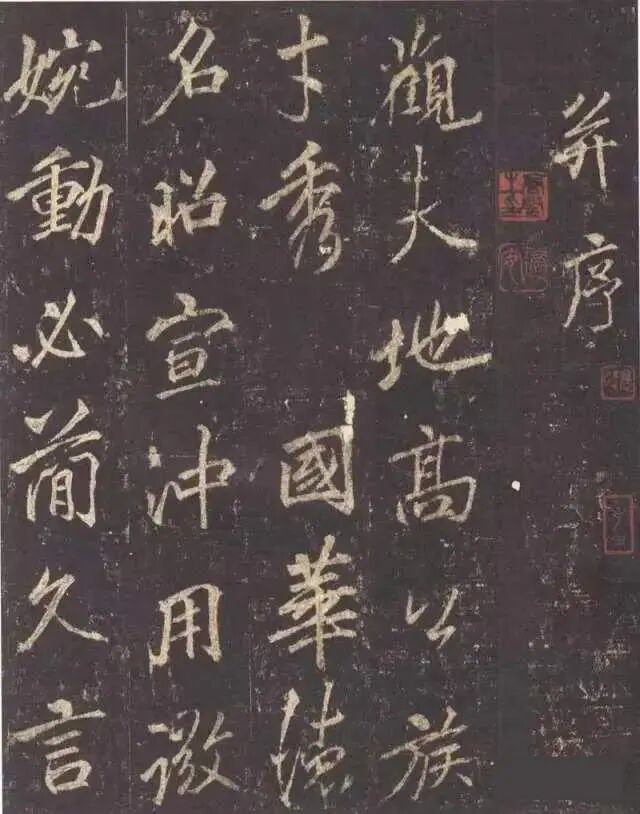 并序
觀夫地高公族
才秀國華德
名昭宣沖用微
婉動必簡久言